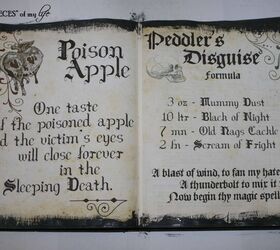 ECES" of my life
Poison
Apple
One taste
of the poisoned apple
and the victim's eyes
will close forever
in the
Sleeping Death.
Peddler's
Disguise
Formula
3 oz - Mummy Dust
10 ltr - Black of Night
7 mn - Old Rags Cackle
2 fn - Scream of Fright
A blast of wind, to fan my hate
A thunderbolt to mix it
Now begin thy magic spell